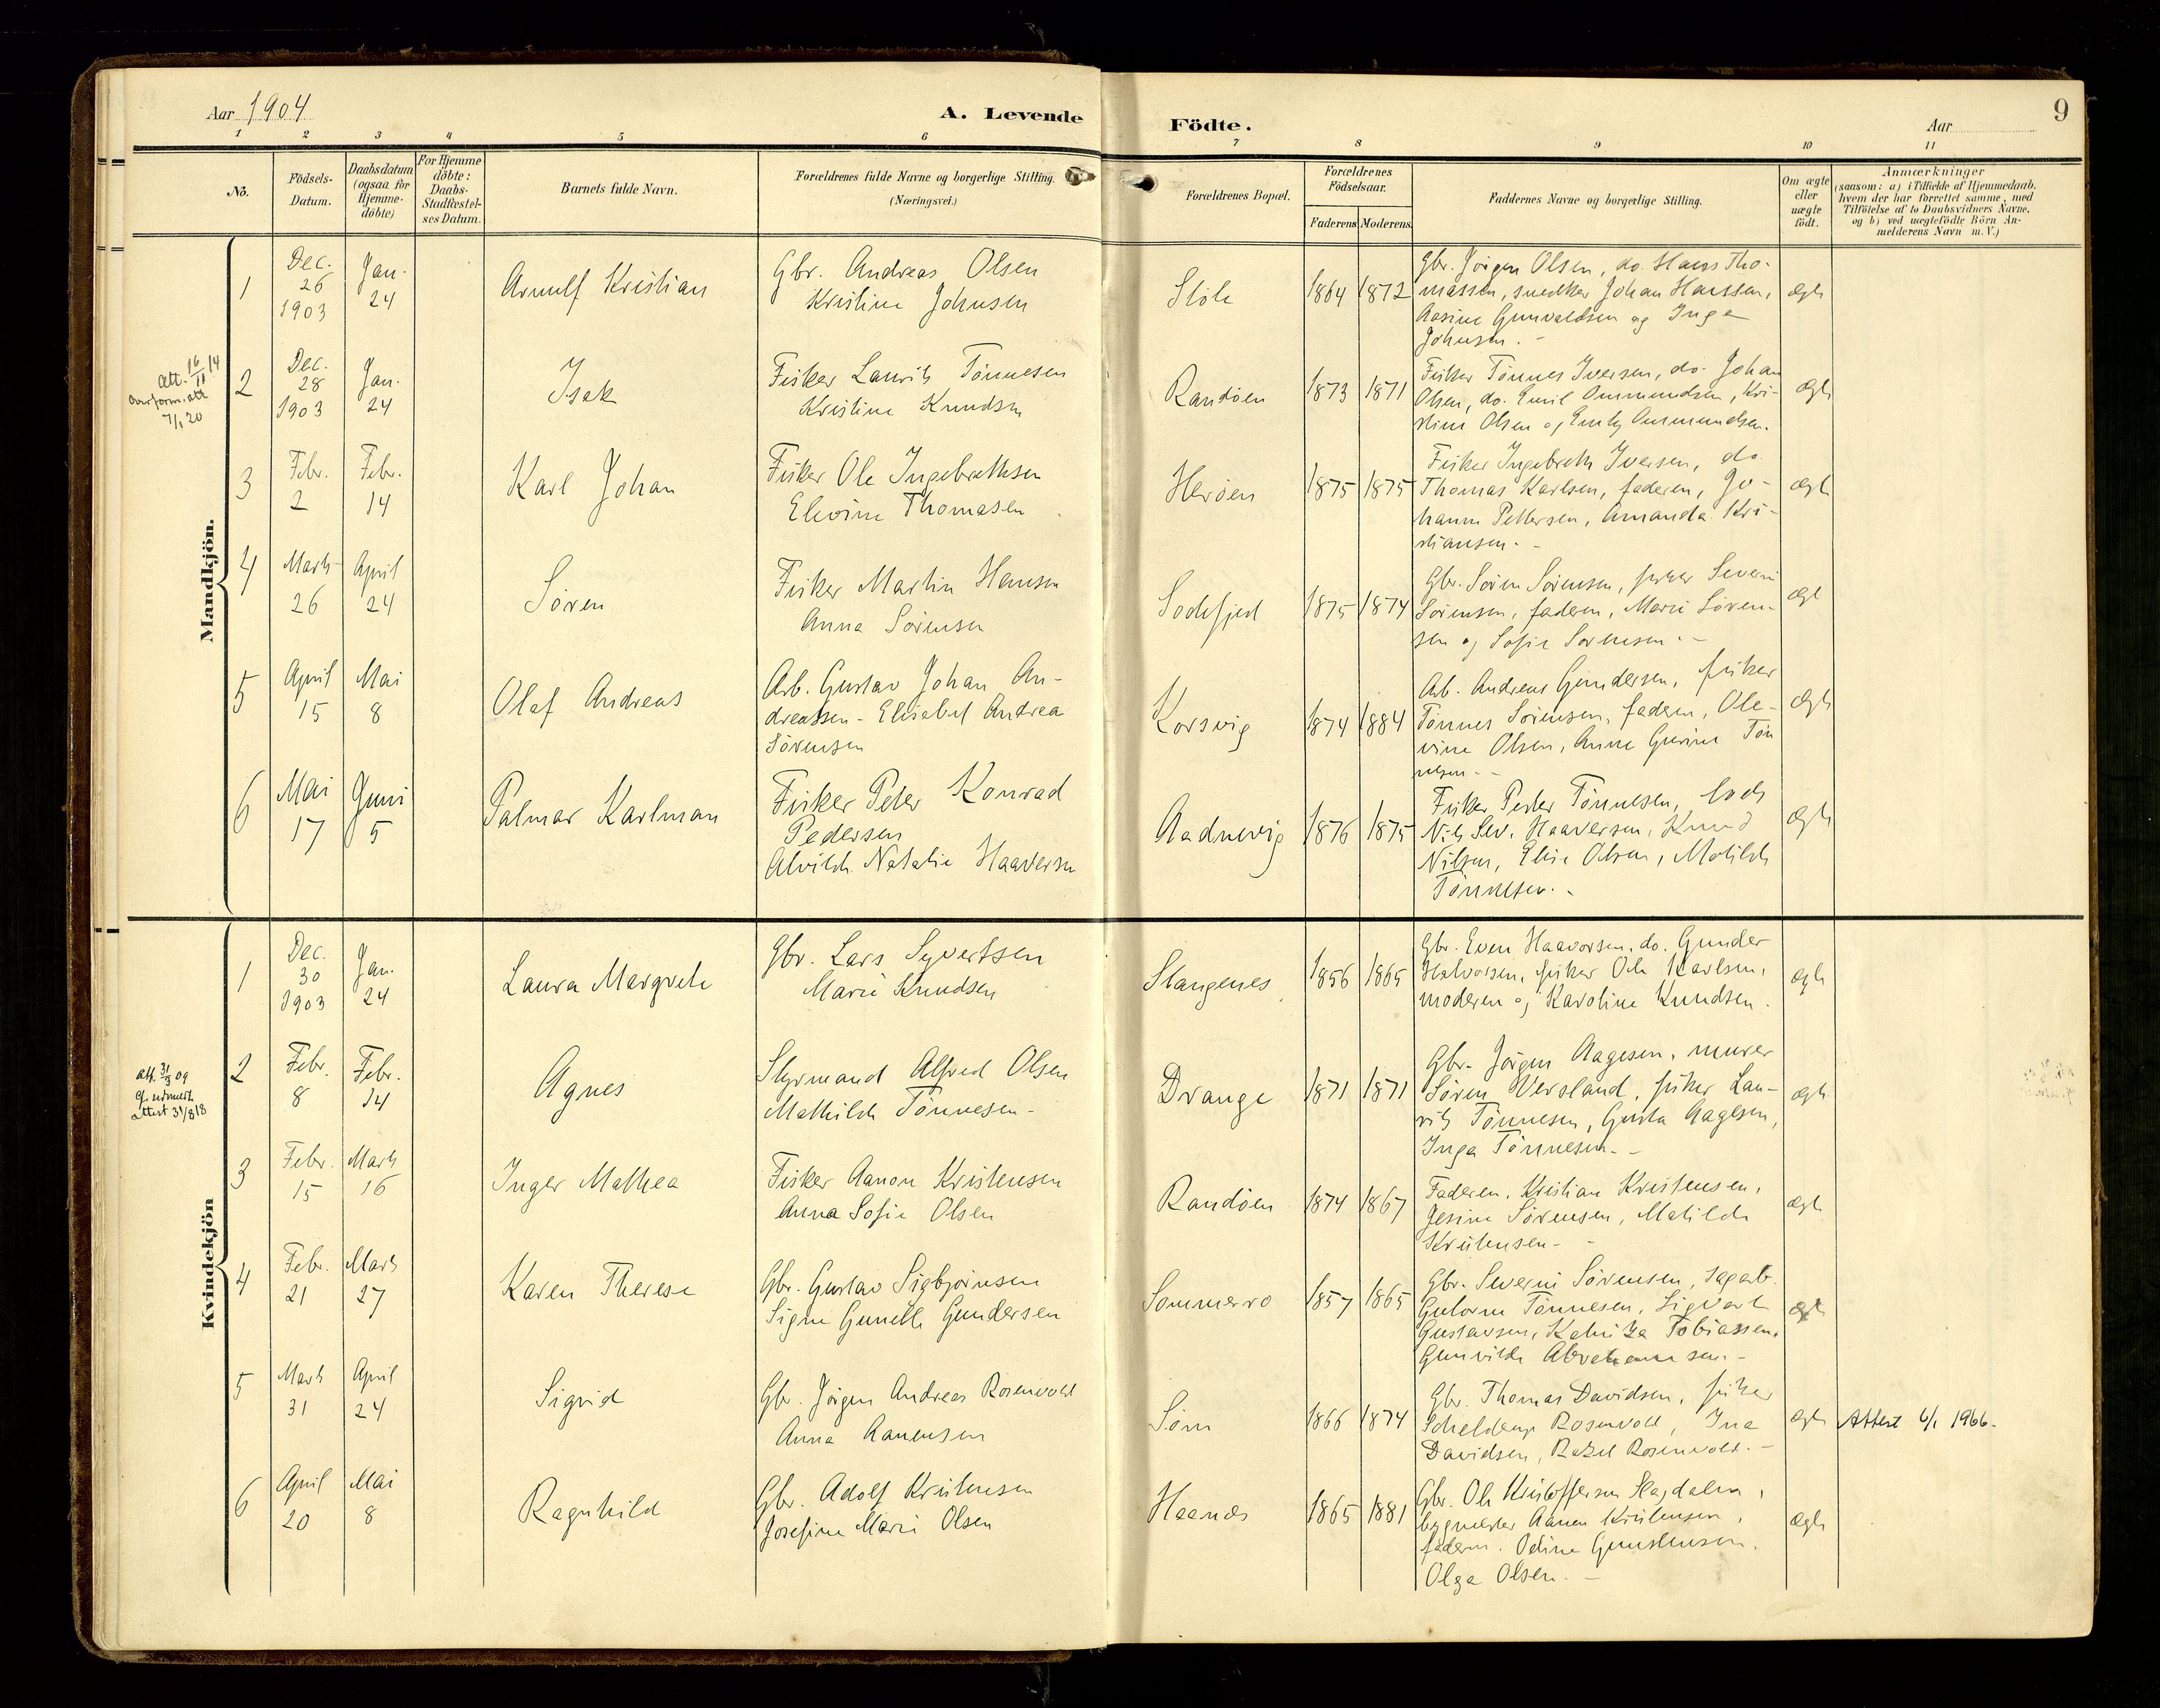 Aar 1904
A. Levende
Födte.
Aar
9
1 2 3 4 5 6 7 8 9 10 11
No.
Födsels-
Datum.
Daabsdatum
(ogsaa for
Hjemme-
döbte)
For Hjemme
döbte:
Daabs-
Stadfæstel-
ses Datum.
Barnets fulde Navn.
Forældrenes fulde Navne og borgerlige Stilling.
(Næringsvei.)
Forældrenes Bopæl.
Forældrenes
Födselsaar.
Faderens Moderens
Faddernes Navne og borgerlige Stilling.
Om ægte
eller
uægte
födt.
Anmærkninger
(saasom: a) i Tilfælde af Hjemmedaab.
hvem der har forrettet samme, med
Tilföielse af to Daabsvidners Navne.
og b) ved uægtefödte Börn An-
melderens Navn m. V.)
Mandkjön.
1
Dec.
26
1903
Jan.
24
Arnulf Kristian
Gbr. Andreas Olsen
Kristine Johnsen
1864 1872
Gbr. Jörgen Olsen, do. Hans Tho-
massen, snedker Johan Hanssen,
Aasine Gunvaldsen og Inga
Johnsen. -
ægte
Att. 16/11 14
7/1 20
2
Dec.
28
1903
Jan.
24
Isak
Fisker Laurits Tönnesen
Kristine Knudsen
Randöen
1873 1871
Fisker Tönnes Iversen, do. Johan
Olsen, do. Emil Ommundsen, Kri-
stine Olsen og Emly Ommundsen.
ægte
3
Febr.
2
Febr.
14
Karl Johan
Fisker Ole Ingebrethsen
Elevine Thomasen
Heröen
1875 1875
Fisker Ingebreth Iversen, do.
Thomas Karlsen, faderen, Jo-
hanne Pettersen, Amanda Kri-
stiansen. -
ægte
4
Marts
26
April
24
Sören
Fisker Martin Hansen
Anna Sörensen
Sodefjed
1875 1874
Gbr. Sören Sörensen, fisker Severin
Sörensen, faderen, Marie Sören-
sen og Sofie Sörensen. -
ægte
5
April
15
Mai
8
Olaf Andreas
Arb. Gustav Johan An-
dreassen - Elisabet Andrea
Sörensen
Korsvig
1874 1884
Arb. Andreas Gundersen, fisker
Tönnes Sörensen, faderen, Ole-
vine Olsen, Anne Gurine Tön
nesen. -
ægte
6
Mai
17
Juni
5
Palmar Karlman
Fisker Peter Konrad
Pedersen
Alvilde Natalie Haaversen
Aadnevig
1876 1875
Fisker Peder Tönnesen, lods
Nils Sev. Haaversen, Knud
Nilsen, Elise Olsen, Matilde
Tönnesen. -
ægte
Kvindekjön
1
Dec.
30
1903
Jan.
24
Laura Margrete
Gbr. Lars Syvertsen
Marie Knudsen
Stangenes
1856 1865
Gbr. Even Haavorsen, do. Gunder
Halvorsen, fisker Ole Karlsen,
moderen og Karoline Knudsen.
ægte
att. 31/3 09
attest 31/8 18
2
Febr.
8
Febr.
14
Agnes
Styrmand Alfred Olsen
Mathilde Tönnesen -
Drange
1871 1871
Gbr. Jörgen Aagesen, murer
Sören Versland, fisker Lau-
rits Tönnesen, Gusta Aagesen,
Inga Tönnesen. -
ægte
3
Febr.
15
Marts
16
Inger Mathea
Fisker Aanon Kristensen
Anna Sofie Olsen
Randöen
1874 1867
Faderen, Kristian Kristensen,
Jesine Sörensen, Matilde
Kristensen - -
ægte
4
Febr.
21
Marts
27
Karen Therese
Gbr. Gustav Sigbjörnsen
Signe Gunelle Gundersen
Sommerro
1857 1865
Gbr. Severin Sörensen, sagarb.
Gutorm Tönnesen, Sigvart
Gustavsen, Tobiassen,
Gunvilde Abrahamsen. -
ægte
5
Marts
31
April
24
Sigrid
Gbr. Jörgen Andreas Rosenvold
Anna Aanensen
Söm
1866 1874
Gbr. Thomas Davidsen, fisker
Scheldrup Rosenvold, Ina
Davidsen, Rakel Rosenvold. -
ægte
Attest 6/1 1966.
6
April
20
Mai
8
Ragnhild
Gbr. Adolf Kristensen
Josefine Marie Olsen
Haanes
1865 1881
Gbr. Ole Kristoffersen
bygmester Aanen Kristensen,
faderen. Odine
Olga Olsen. -
ægte